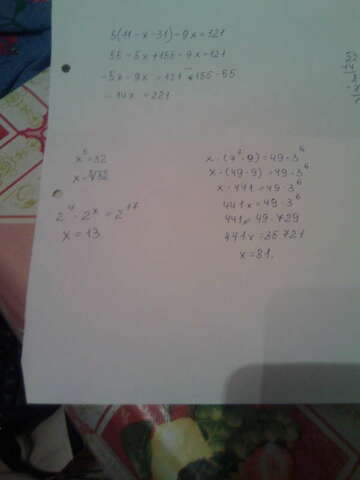 5(11-x-31)-9x=121
55-5x+155-9x=121
-5x-9x=121+155-55
-14x=221
x⁵=32
x=⁵√32
2⁴·2ˣ=2¹⁷
x=13
x·(7²·9)=49·3⁶
x·(49·9)=49·3⁶
x·441=49·3⁶
441x=49·3⁶
441x=49·729
441x=35721
x=81.